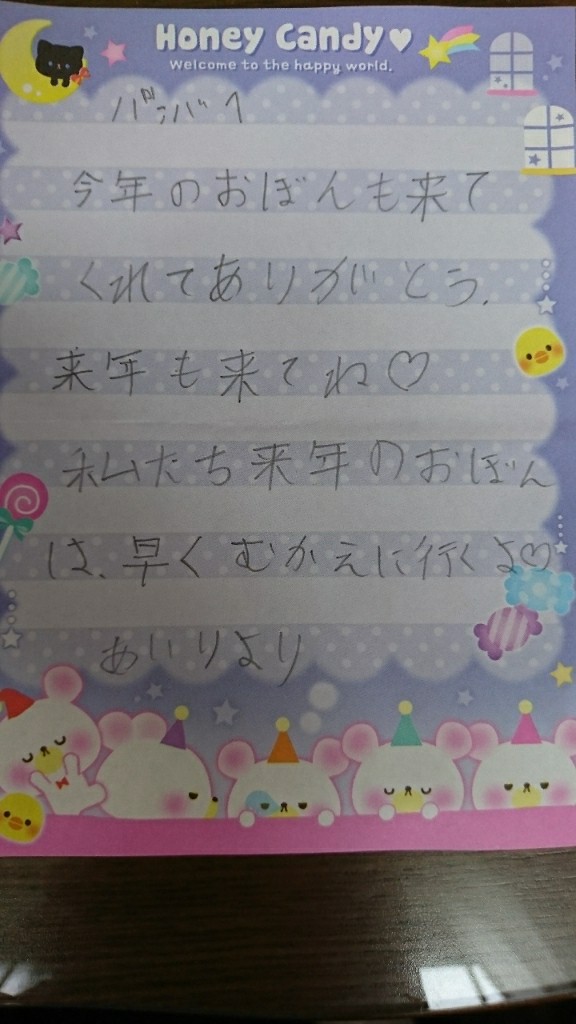 Honey Candy♥
Welcome to the happy world.
バァバへ
今年のおぼんも来て
くれてありがとう.
来年も来てね♡
私たち来年のおぼん
は、早くむかえに行くよ♡
あいりより